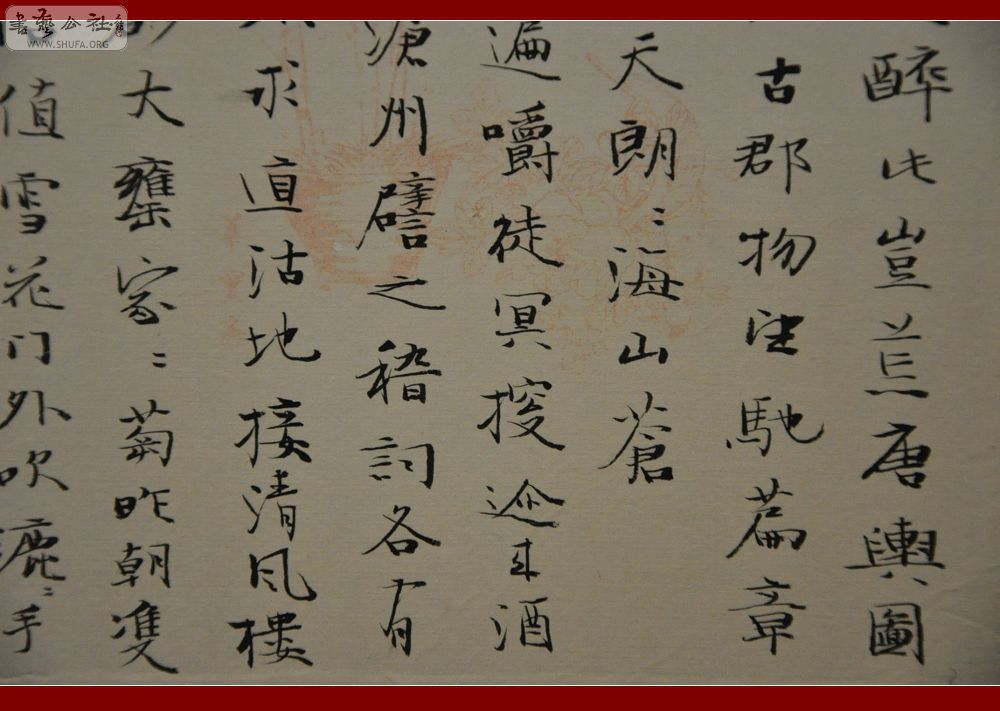 醉此豈荒唐輿圖
古郡物望馳篇章
天朗〻海山蒼
遍嚼徒冥搜邇來酒
滄州譬之稽詞各有
求直沽地接清風樓
大甕家〻菊昨朝隻
值雪花门外吹漉〻手
書藝公社
WWW.SHUFA.ORG